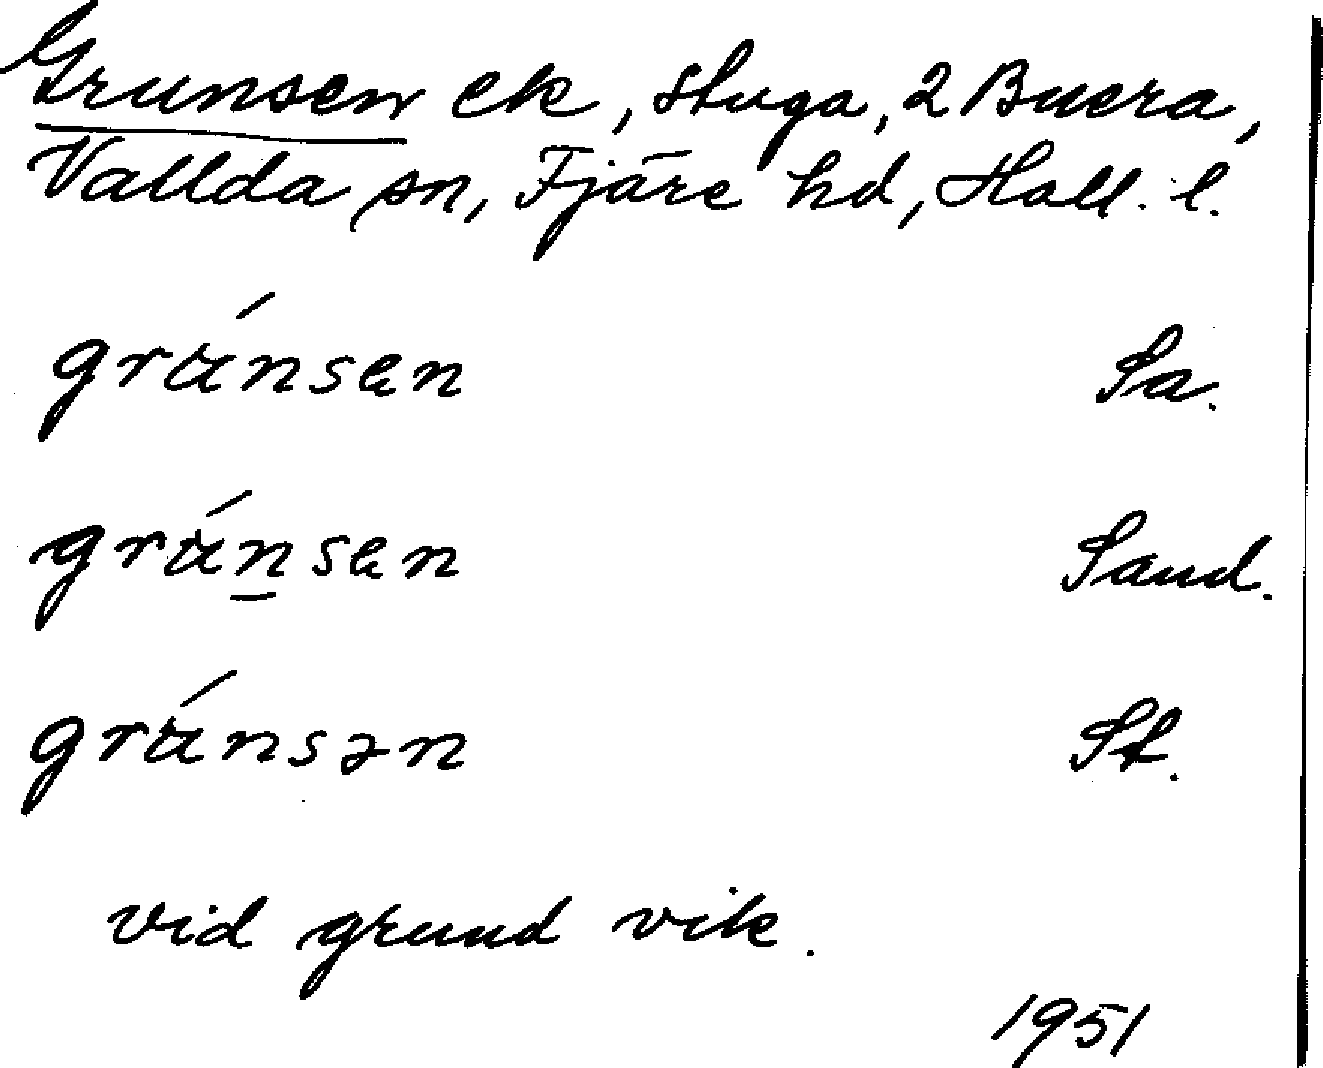 Grunsen ek, stuga, 2 Buera,
Vallda sn, Fjäre hd, Hall. l.
grʉ́nsen Sa.
grʉ́n̲sen Sand.
grʉ́nsən St.
vid grund vik.
1951